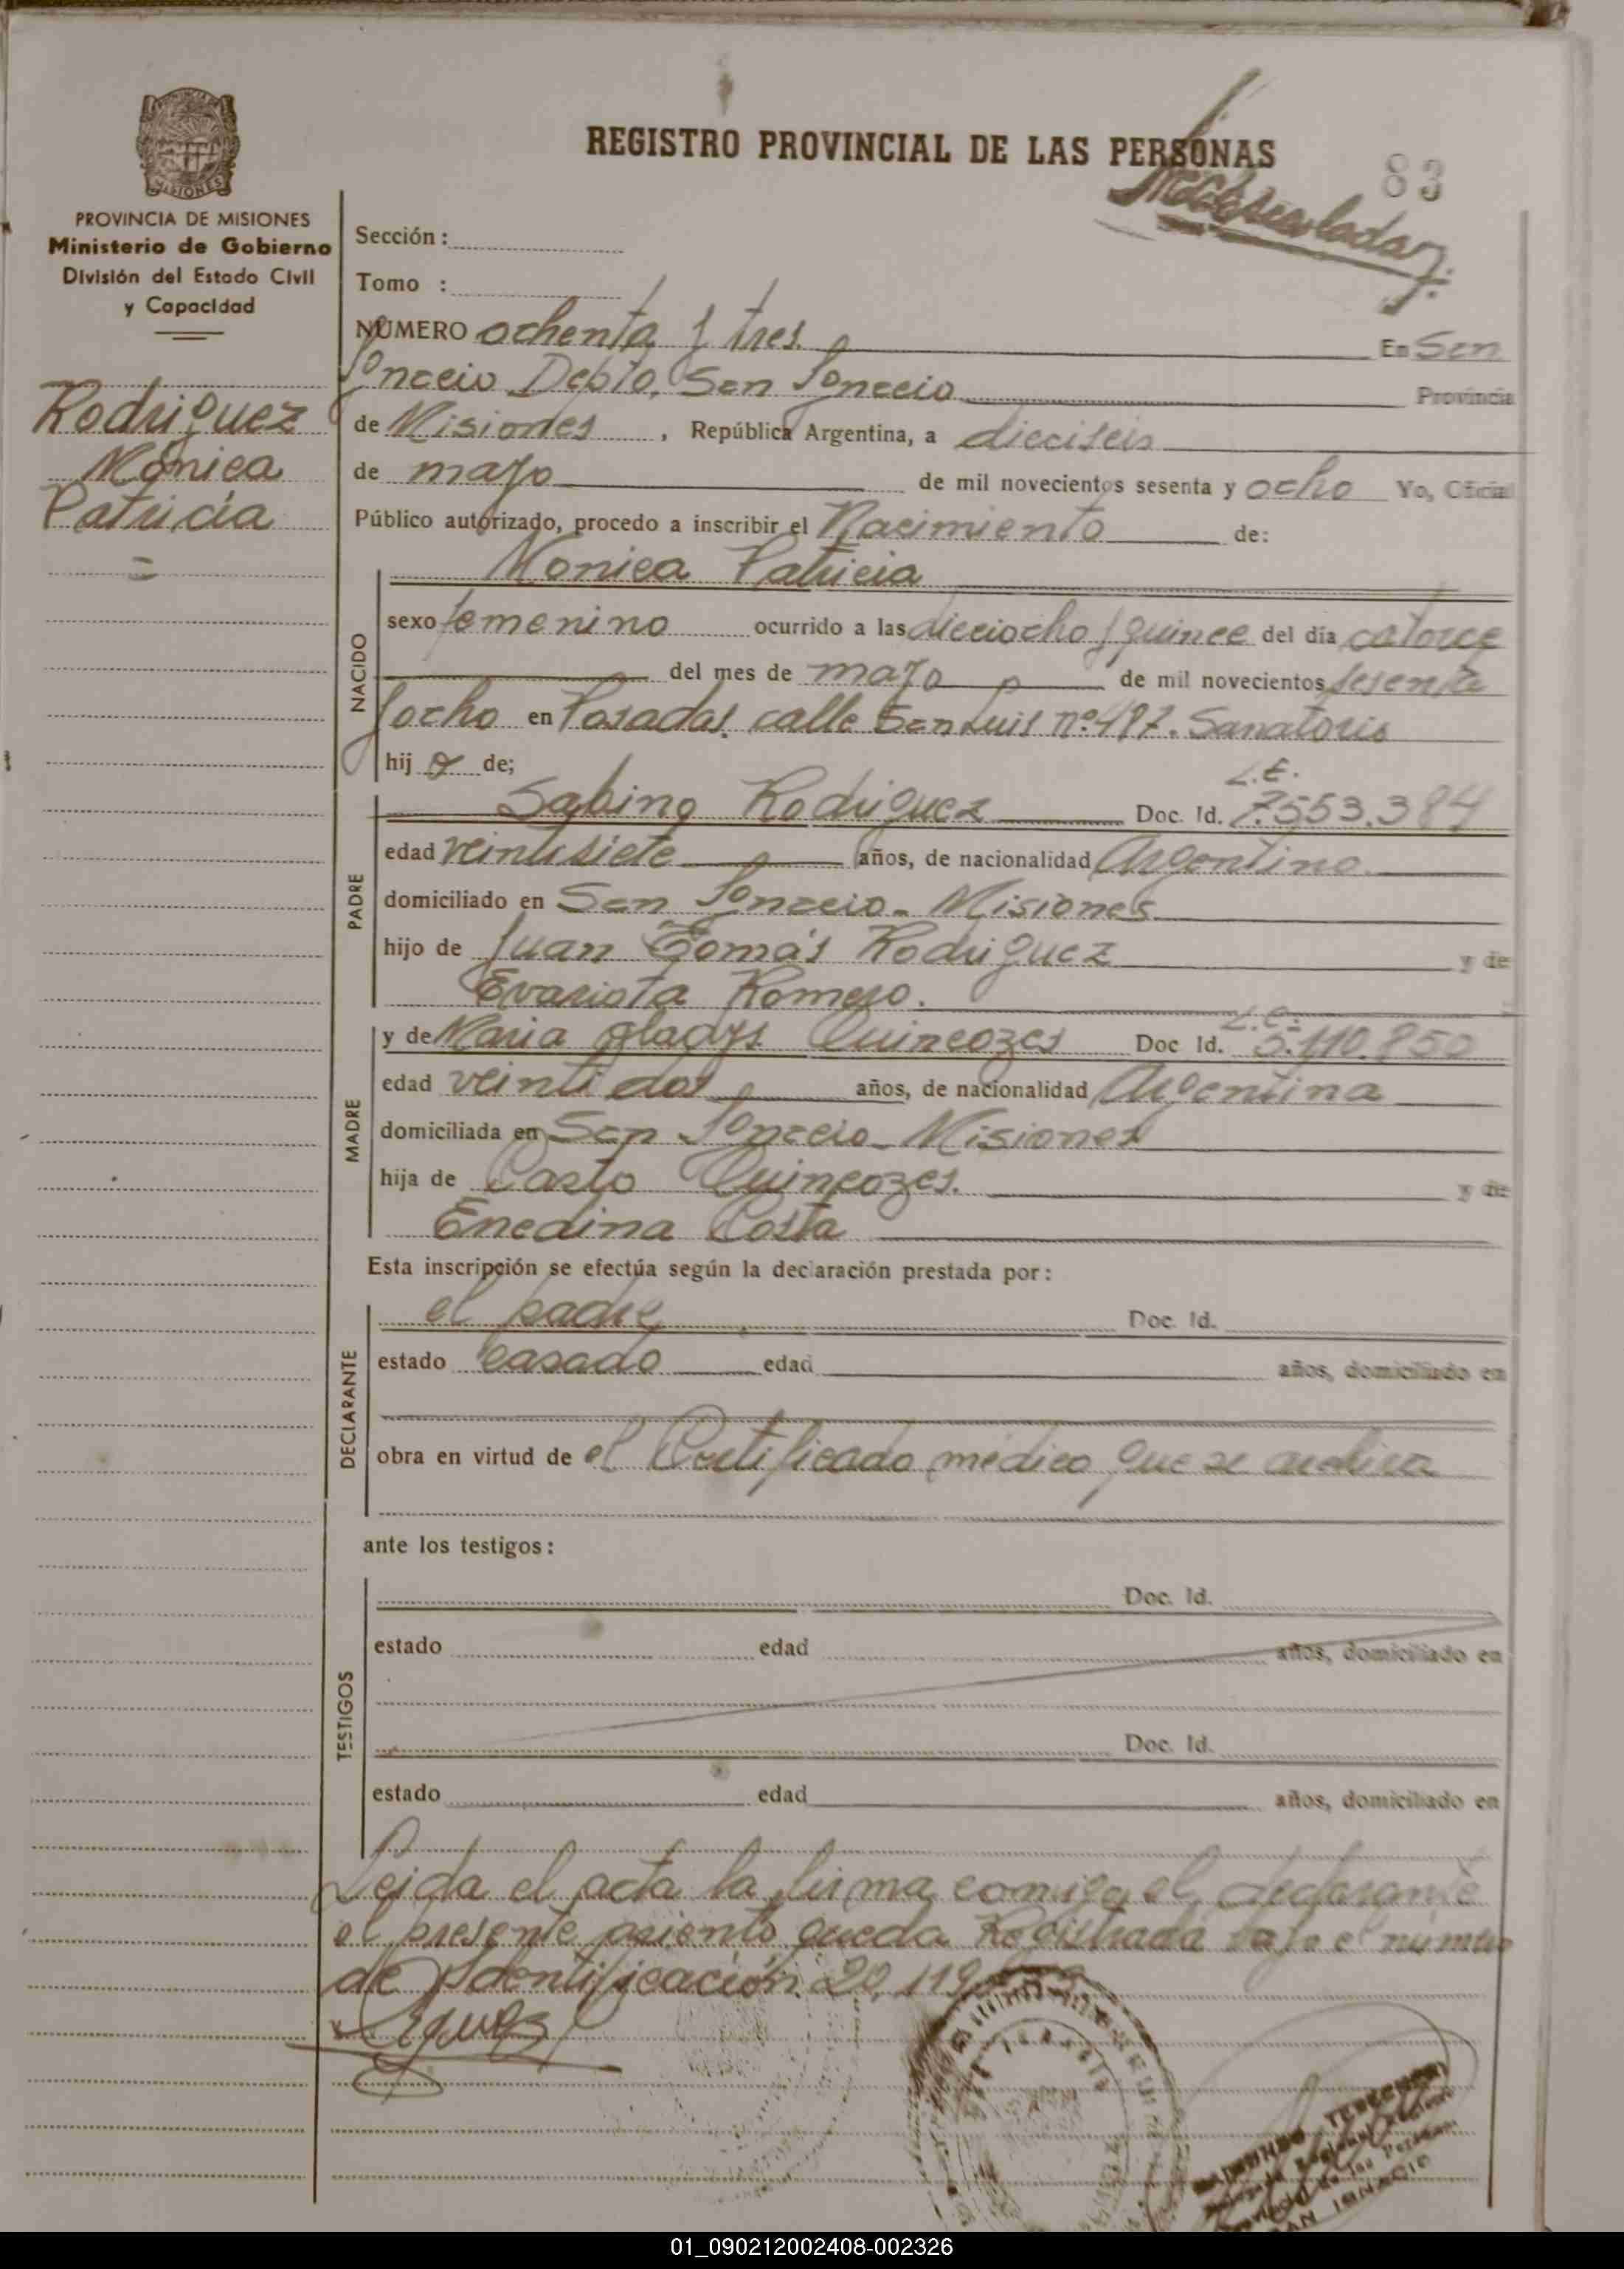 REGISTRO PROVINCIAL DE LAS PERSONAS
83
PROVINCIA DE MISIONES
Ministerio de Gobierno
División del Estado Civil
y Capacidad
MISIONES
Rodriguez
Mónica
Patricia
Sección:
Tomo :
NÚMERO ochenta y tres. En San
Ignacio Depto. San Ignacio Provincia
de Misiones, República Argentina, a dieciseis
de mayo de mil novecientos sesenta y ocho Yo, Oficial
Público autorizado, procedo a inscribir el Nacimiento de:
NACIDO
Monica Patricia
sexo femenino ocurrido a las dieciocho y quince del día catorce
del mes de mayo de mil novecientos sesenta
y ocho en Posadas, calle San Luis nº 497. Sanatorio
hij a de;
PADRE
L.E.
Sabino Rodriguez Doc. Id. 7.553.384
edad veintisiete años, de nacionalidad Argentino.
domiciliado en San Ignacio - Misiones
hijo de Juan Tomás Rodriguez y de
Evarista Romero.
MADRE
L.C.
y de Maria Gladys Quincozes Doc Id. 5.110.850
edad veintidos años, de nacionalidad Argentina
domiciliada en San Ignacio - Misiones
hija de Casto Quincozes. y de
Enedina Costa
Esta inscripción se efectúa según la declaración prestada por:
DECLARANTE
el padre Doc. Id.
estado casado edad años, domiciliado en
obra en virtud de el Certificado médico que se archiva
ante los testigos:
TESTIGOS
Doc. Id.
estado edad años, domiciliado en
Doc. Id.
estado edad años, domiciliado en
Leida el acta la firma conmigo el declarante
el presente asiento queda Registrada bajo el numero
de Identificación 20.119
SAN IGNACIO
01_090212002408-002326